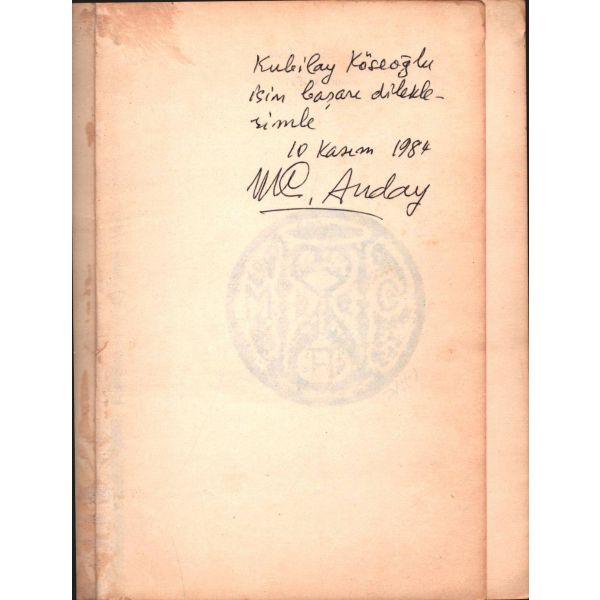 Kubilay Köseoğlu
için başarı dilekle-
rimle
10 Kasım 1984
M C. Anday